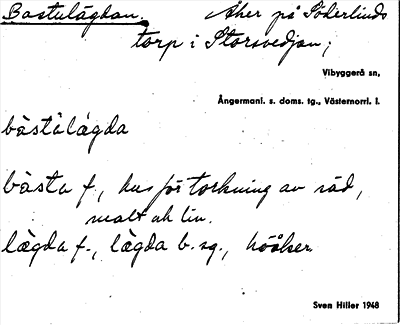 Bastulägdan. Åker på Söderlinds
torp i Storsvedjan;
Vibyggerå sn,
Ångermanl. s. doms. tg., Västernorrl. l.
bàstålǽgda
bàsta f., hus för torkning av säd,
malt och lin.
lǽgda f., lǽgda b. sg., höåker
Sven Hiller 1948